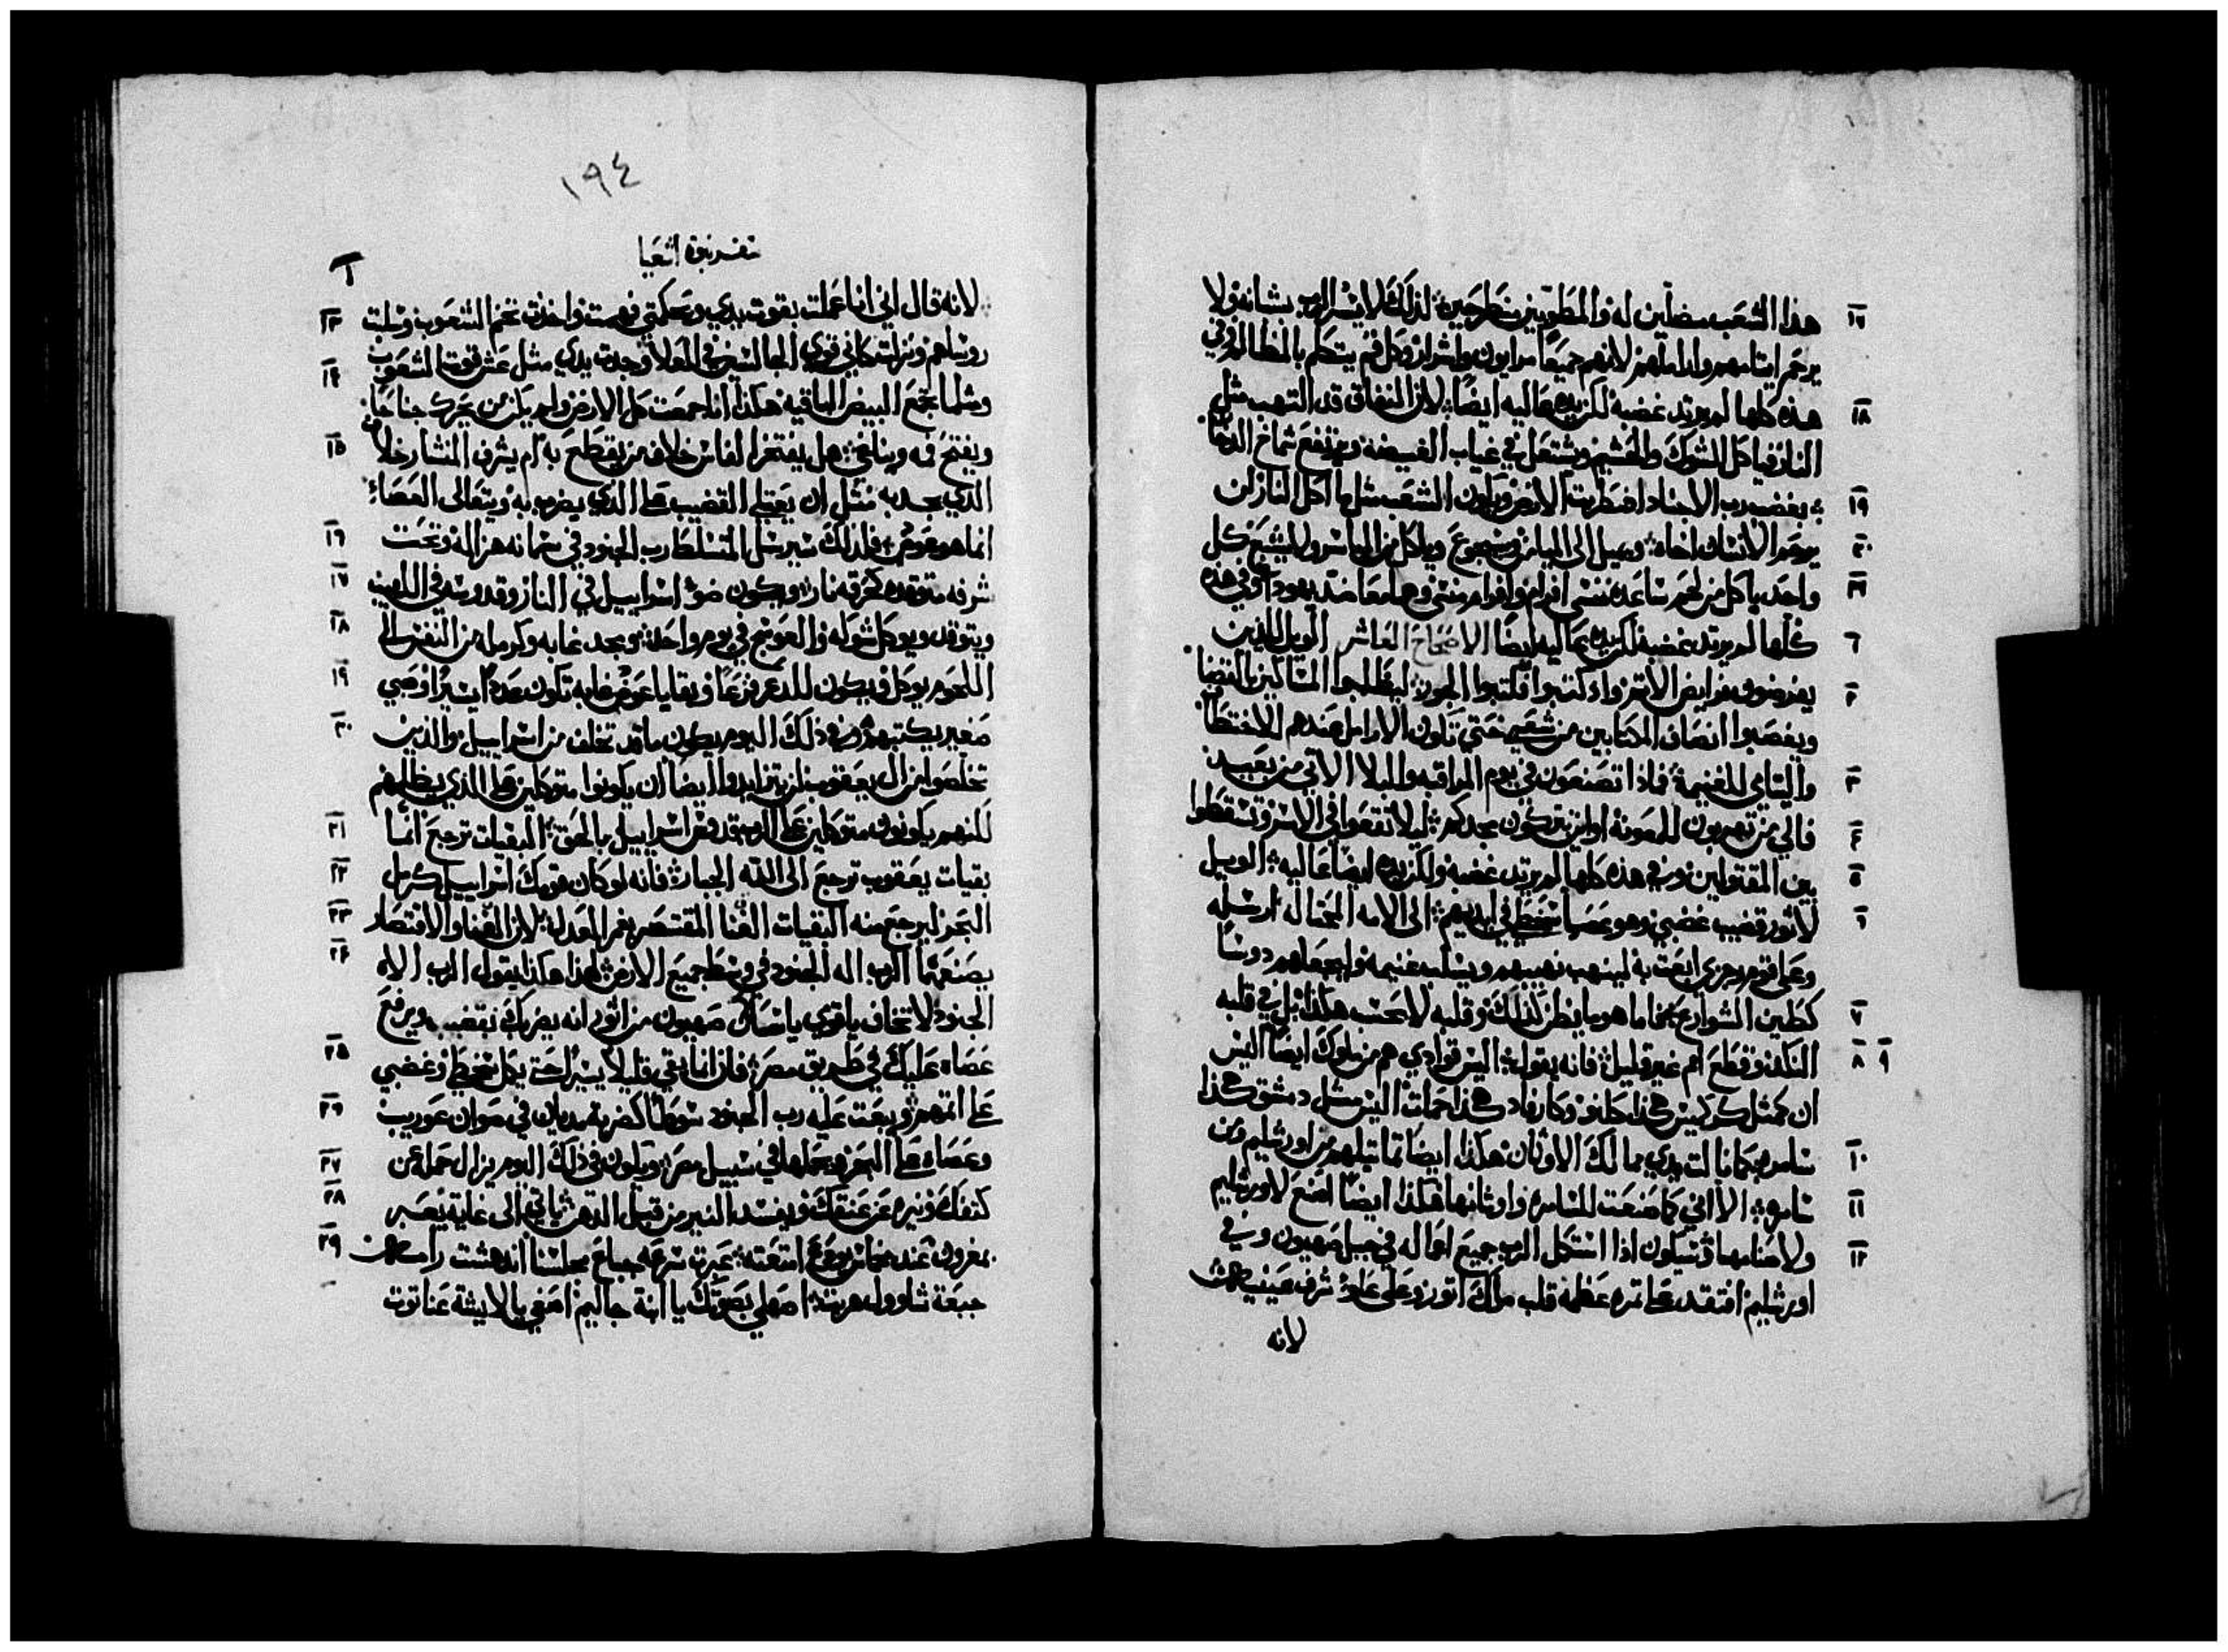 هذا الشعب مضلين له والمطوبين منطرحين لذلك لا يسر الرب بشبانه ولا ١٧
يرحم ايتامهم واراملهم لانهم جميعاً مرايون واشرار وكل فم يتكلم بالمظالم وفي
هذه كلها لم يرتد غضبه لكن يده عاليه ايضاً لان النفاق قد التهب مثل ١٨
النار فياكل الشوك والهشيم ويشتعل في غياب الغيضه ويرتفع شماخ الدخان
بغضب رب الاجناد اضطربت الارض ويكون الشعب مثل ماكل النار لن ١٩
يرحم الانسان اخاه ويميل الى اليمين ويجوع وياكل من الياسر ولا يشبع كل ٢٠
واحد ياكل من لحم ساعده منسى افرام وافرام منسى وهما معا ضد يهودا وفي هذه ٢١
كلها لم يرتد غضبه لكن يده عاليه ايضا الاصحاح العاشر الويل للذين
يفرضون فرايض الاثم واذ كتبوا فكتبوا الجور ليظلموا المساكين بالقضا ٢
ويغصبوا انصاف المكتابين من شعبي حتى تكون الارامل عندهم للاختطاف
واليتامى للغنيمة فماذا تصنعون في يوم المراقبه والبلا الاتي من بعيد ٣
فالى من تهربون للمعونة او اين تتركون مجدكم ليلا تقعوا في الاسر وتسقطوا ٤
بين المقتولين وفي هذه كلها لم يرتد غضبه ولكن يده ايضا عاليه الويل ٥
لاثور قضيب غضبي وهو عصا سخطي في ايديهم الى الامه المحتاله ارسله ٦
وعلى قوم رجزي ابعت به لينهب نهيبهم ويسلب غنيمه واجعلهم دوسا
كطين الشوارع فاما هو ما يظن كذلك وقلبه لا يحسب هكذا بل في قلبه ٧
النكد وقطع امم غير قليل فانه يقول اليس قوادي هم من ملوك ايضا اليس ٨ ٩
ان كمثل كركميش هكذا كلنو وكارفاد هكذا حمات اليس مثل دمشق هكذا
سامريه كما نالت يدي ممالك الاوثان هكذا ايضا تماتيلهم من اورشليم ومن ١٠
سامره الا انني كما صنعت للسامره واوثانها هكذا ايضا اصنع لاورشليم ١١
ولاصنامها وسيكون اذا استكمل الرب جميع اعماله في جبل صهيون وفي ١٢
اورشليم افتقد على ثمره عظمة قلب ملك اثور وعلى علو شرف عينيه
لانه
١٩٤
تفسر نبوة اشعيا
لانه قال اني انا عملت بقوت يدي وبحكمتي فهمت واخذت تخم الشعوب وسلبت ١٣
روساهم ونزلت كاني قوي الجالسين في العلا وجدت يدي مثل عش قوت الشعوب ١٤
وكما يجمع البيض الباقيه هكذا انا جمعت كل الارض ولم يكن من يحرك جناحا
ويفتح فمه ويناغي هل يفتخر الفاس خلاف من يقطع به ام يشرف المنشار خلاف ١٥
الذي يجد به مثل ان يعتلي القضيب على الذي يضرب به ويتعالى العصاء
انما هو عود فلذلك سيرسل المتسلط رب الجنود في سمانه هزاله وتحت ١٦
شرفه متوقده كحرقه نار ويكون ضو اسراييل في النار وقدوسه في اللهيب ١٧
ويتوقد ويوكل شوكه والعوسج في يوم واحد ومجد غابه وكرمله من النفس الى ١٨
اللحم يوكل ويكون للدعر فزعا وبقايا عود غابه تكون عددا يسيرا وصبي ١٩
صغير يكتبهم وفي ذلك اليوم يكون ما قد تخلف من اسراييل والذين ٢٠
تخلصوا من ال يعقوب لن يتزايدوا ايضا ان يكونوا متوكلين على الذي يظلمهم
لكنهم يكونون متوكلين على الرب قدوس اسراييل بالحق البقيات ترجع انما ٢١
بقيات يعقوب ترجع الى الله الجبار فانه لو كان قومك اسراييل كرمل ٢٢
البحر ليرجع منه البقيات الفنا المقتصر يغمر العدل لان الفنا والاقتصار ٢٣
يصنعهما الرب اله الجنود في وسط جميع الارض لهذا هكذا يقول الرب الاه ٢٤
الجنود لا تخاف يا قومي يا سكان صهيون من اثور انه يضربك بقضيب ويرفع
عصاه عليك في طريق مصر فان انا بقي قليلا يسيرا حتى يكمل سخطي وغضبي ٢٥
على اثمهم ويبعت عليه رب الجنود سوطا كضربة مديان في صوان عوريب ٢٦
وعصاه على البحر ويحملها في سبيل مصر ويكون في ذلك اليوم يزال حمله عن ٢٧
كتفك ونيره عن عنقك ويفسد النير من قبل الدهن ياتي الى غاية يعبر ٢٨
بمغرون عند مخماس يودع امتعته عبرت سرعه جباع مجلسنا اندهشت رامه ٢٩
جبعة شاوول هربت اصهلي بصوتك يا ابنة جاليم اصغي يا لايشة عناتوت